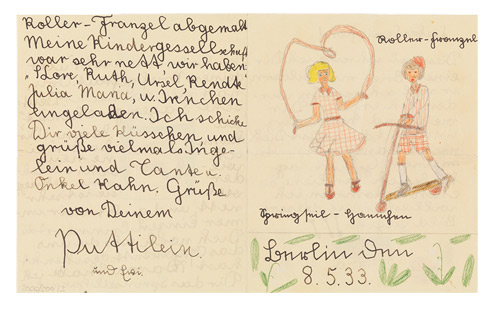 Roller-Franzel abgemalt
Meine Kindergesellschaft
war sehr nett wir haben:
Lore, Ruth, Ursel, Renate
Julia Mana, u. Irnchen
eingeladen. Ich schicke
Dir viele Küsschen und
grüße vielmals Inge-
lein und Tante u.
Onkel Hahn. Grüße
von Deinem
Puttilein.
und
Roller-Franzel
Springseil-Hannchen
Berlin den
8.5.33.